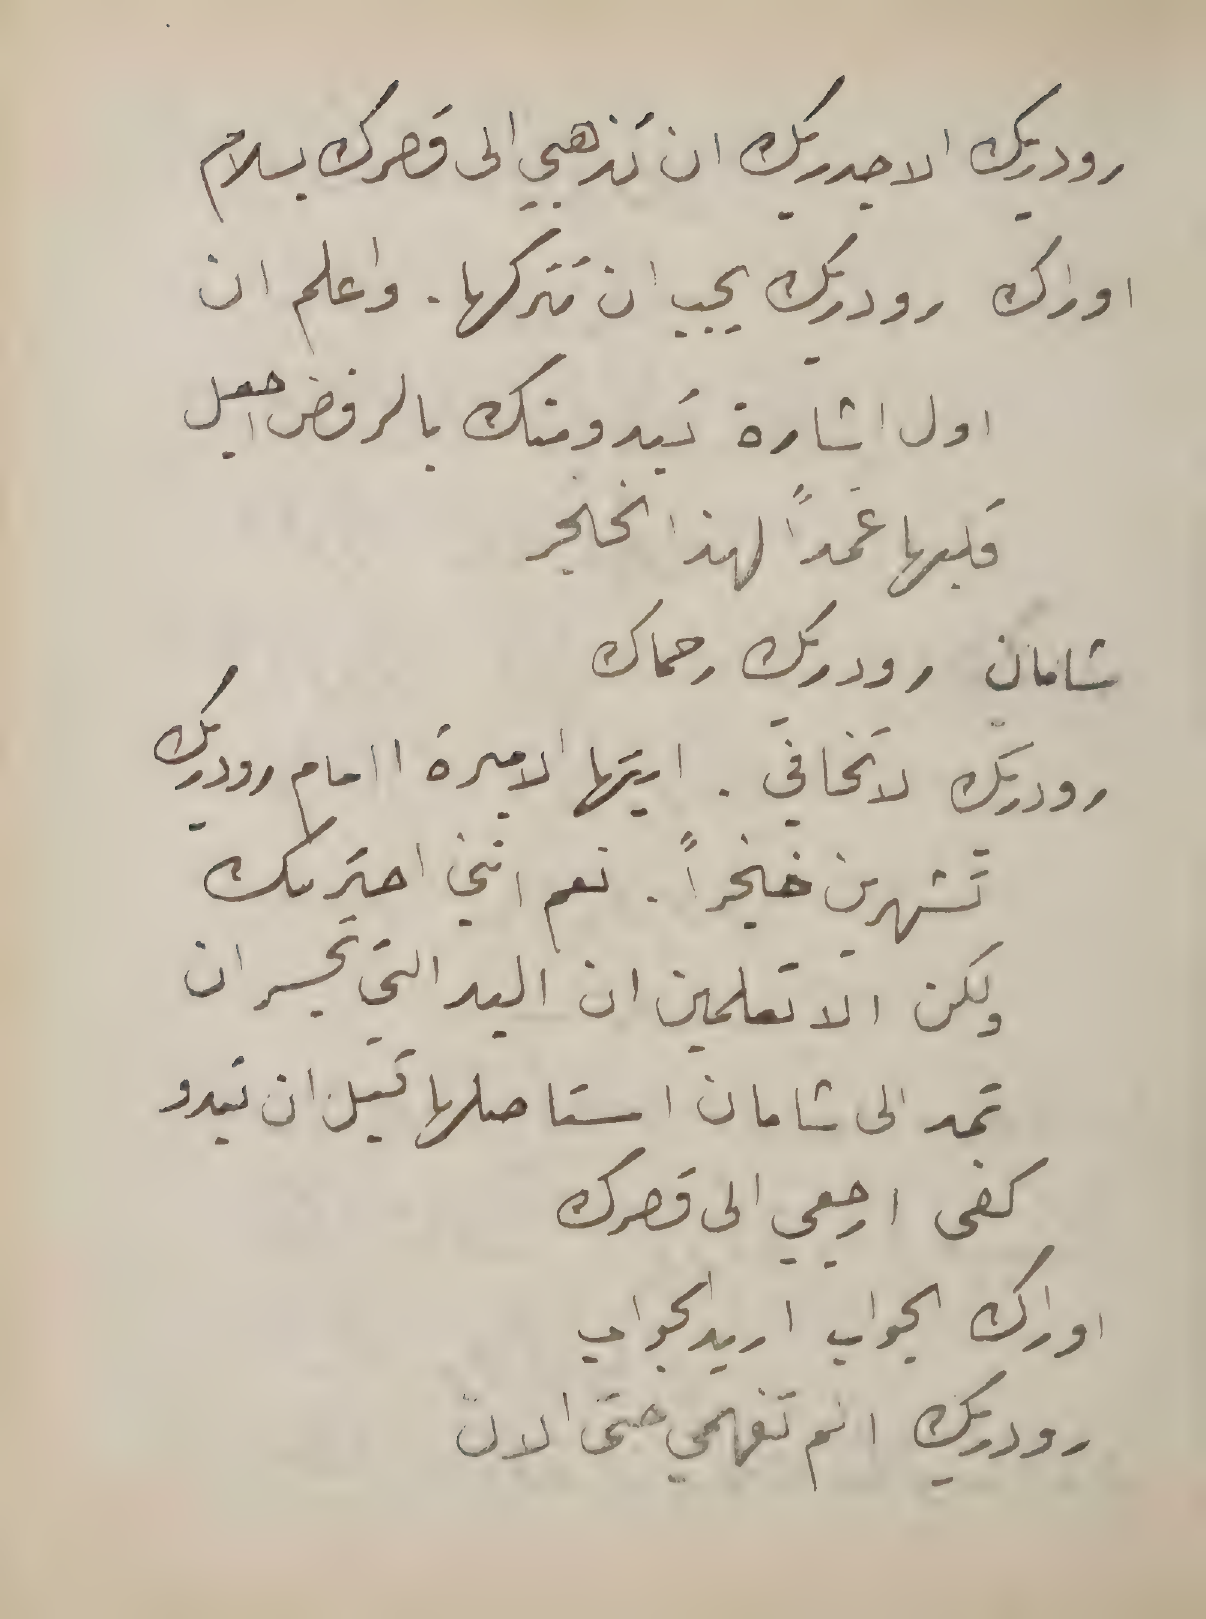 رودريك الاجدر بك ان تذهبي الى قصرك بسلام
اوراك رودريك يجب ان تتركها . واعلم ان
اول اشارة تبدو منك بالرفض اجعل
قلبها غمداً لهذا الخنجر
شامان رودريك رحماك
رودريك لا تخافي . ايتها الاميرة اامام رودريك
تشهرين خنجراً . نعم انني احترمك
ولكن الا تعلمين ان اليد التي تجسر ان
تمد الى شامان استاصلها قبل ان تبدو
كفى ارجعي الى قصرك
اوراك الجواب اريد الجواب
رودريك الم تفهمي حتى الان